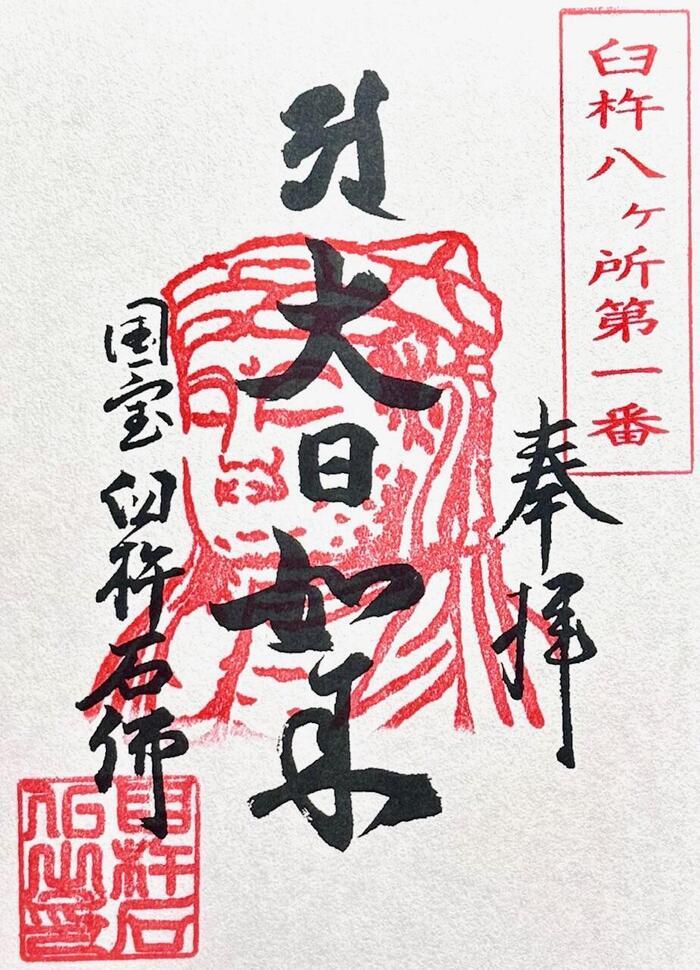 臼杵八ヶ所第一番
奉拝
大日如来
国宝臼杵石佛
臼杵石
仏之印